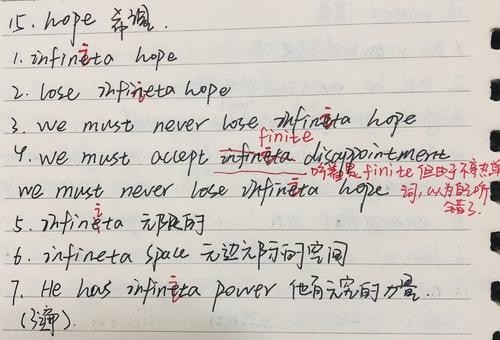 15. hope 希望.
1. infineta hope
2. lose infineta hope
3. we must never lose infineta hope
finite
4. we must accept infineta disappointment
听着是 finite 但由于
we must never lose infineta hope 词,以为自己听
错了.
5. infineta 无限的
6. infineta space 无边无际的空间
7. He has infineta power 他有无穷的力量.